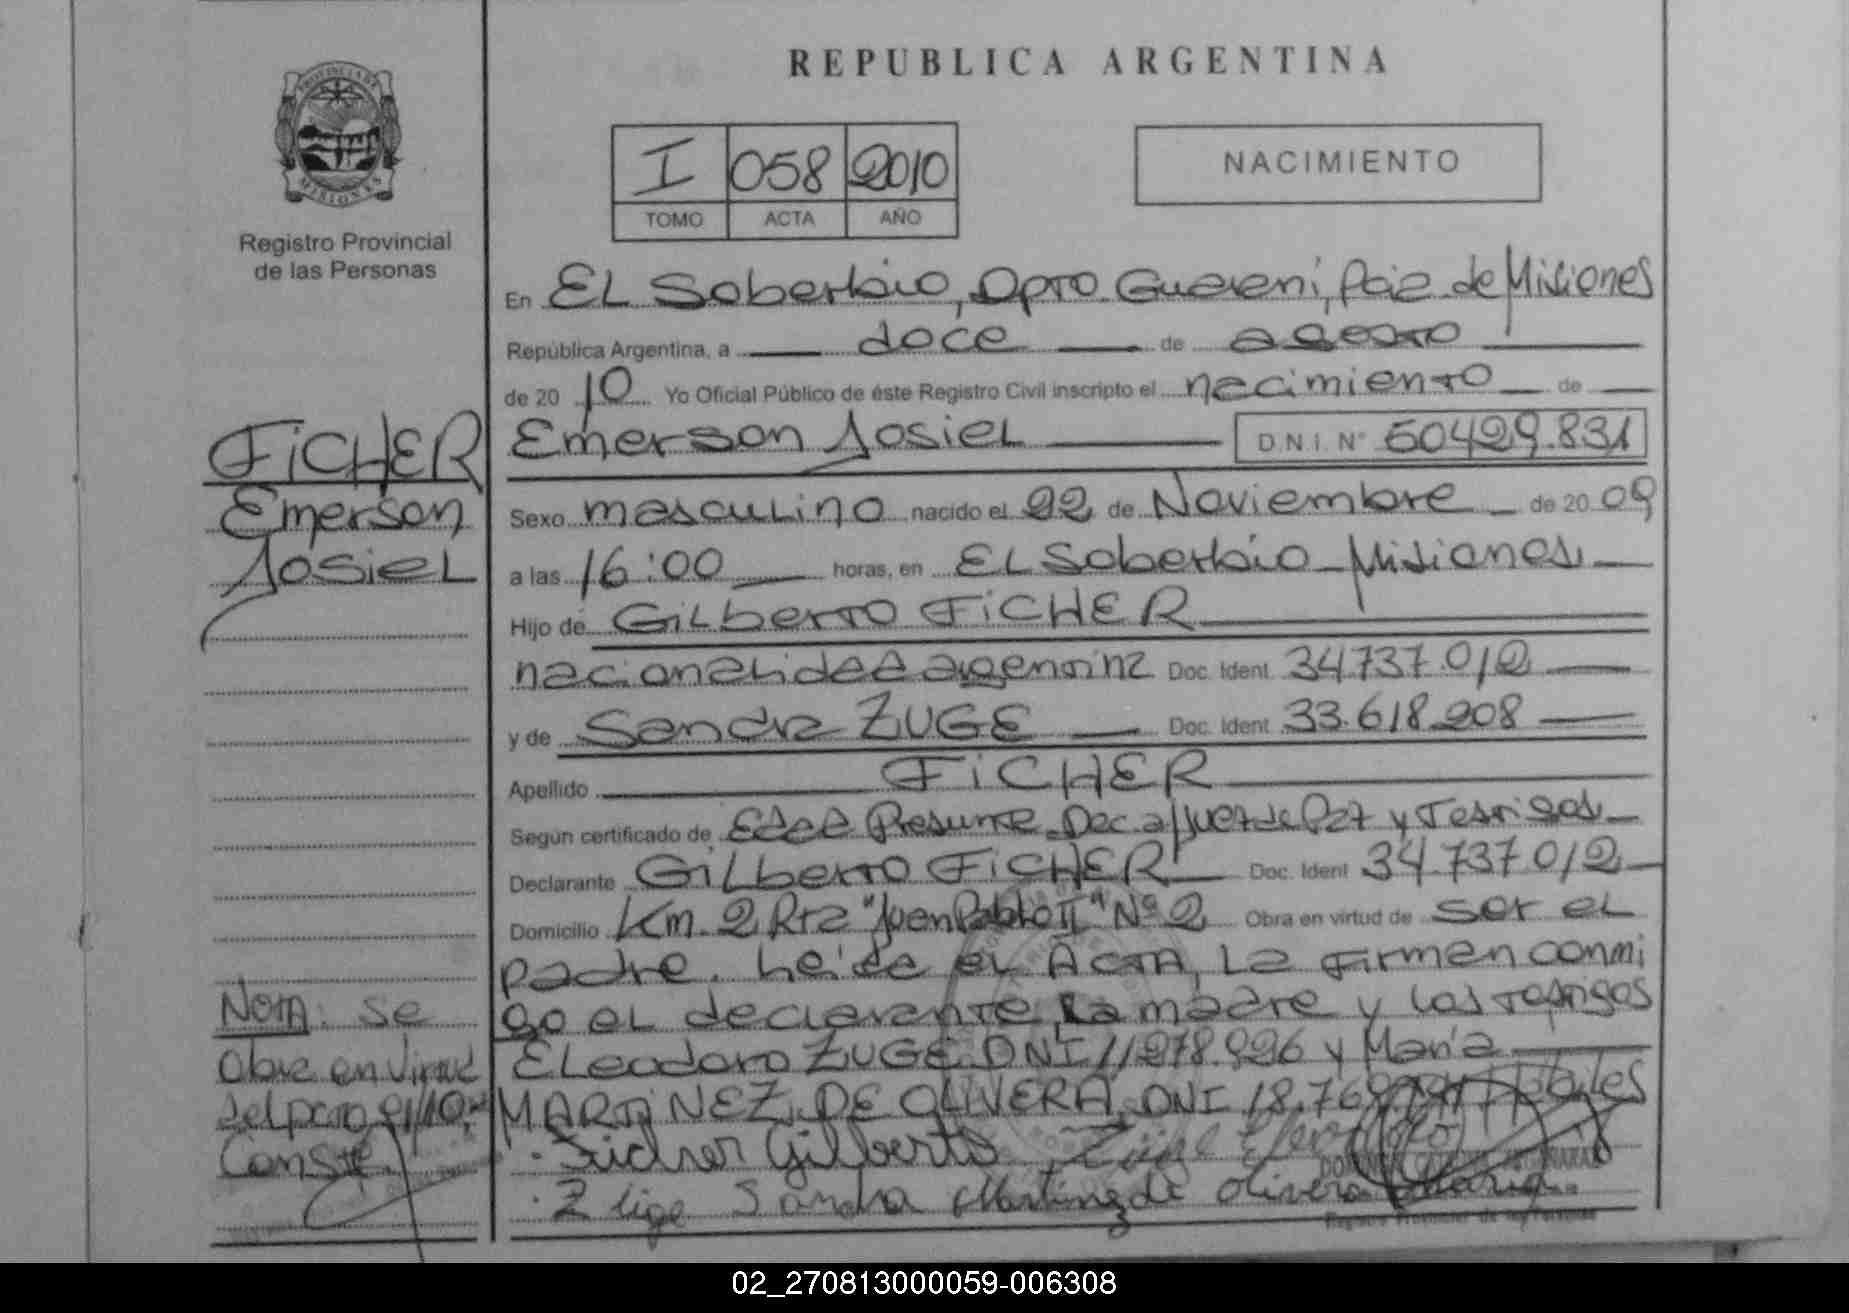 REPUBLICA ARGENTINA
PROVINCIA DE
MISIONES
Registro Provincial
de las Personas
I 058 2010
TOMO ACTA AÑO
NACIMIENTO
En EL Soberbio, Dpto. Guarani, Pcia. de Misiones
República Argentina, a doce de agosto
de 20 10 Yo Oficial Público de éste Registro Civil inscripto el nacimiento de
Emerson Josiel D.N.I. N° 50429.831
FiCHER
Emerson
Josiel
Sexo masculino nacido el 22 de Noviembre de 20 09
a las 16:00 horas, en EL Soberbio Misiones
Hijo de Gilberto FiCHER
nacionalidad argentina Doc. Ident. 34.737.012
y de Sandra ZUGE Doc. Ident. 33.618.208
Apellido FiCHER
Según certificado de Edad Presunta Dec. a/Juez de Paz y Testigos
Declarante Gilberto FiCHER Doc. Ident. 34.737.012
Domicilio Km. 2 Rta "Juan Pablo II" N° 2 Obra en virtud de ser el
padre. Leida el ACTA, La firman conmi
go el declarante, la madre y los testigos
ELeodoro ZUGE DNI 11.278.926 y María
MARTiNEZ DE OLIVERA, DNI 18.76 Hábiles
NOTA: se
Obra en virtud
del
Conste.
Fricher Gilberto Züge
Züge Sandra Martinez de Olivera
02_270813000059-006308